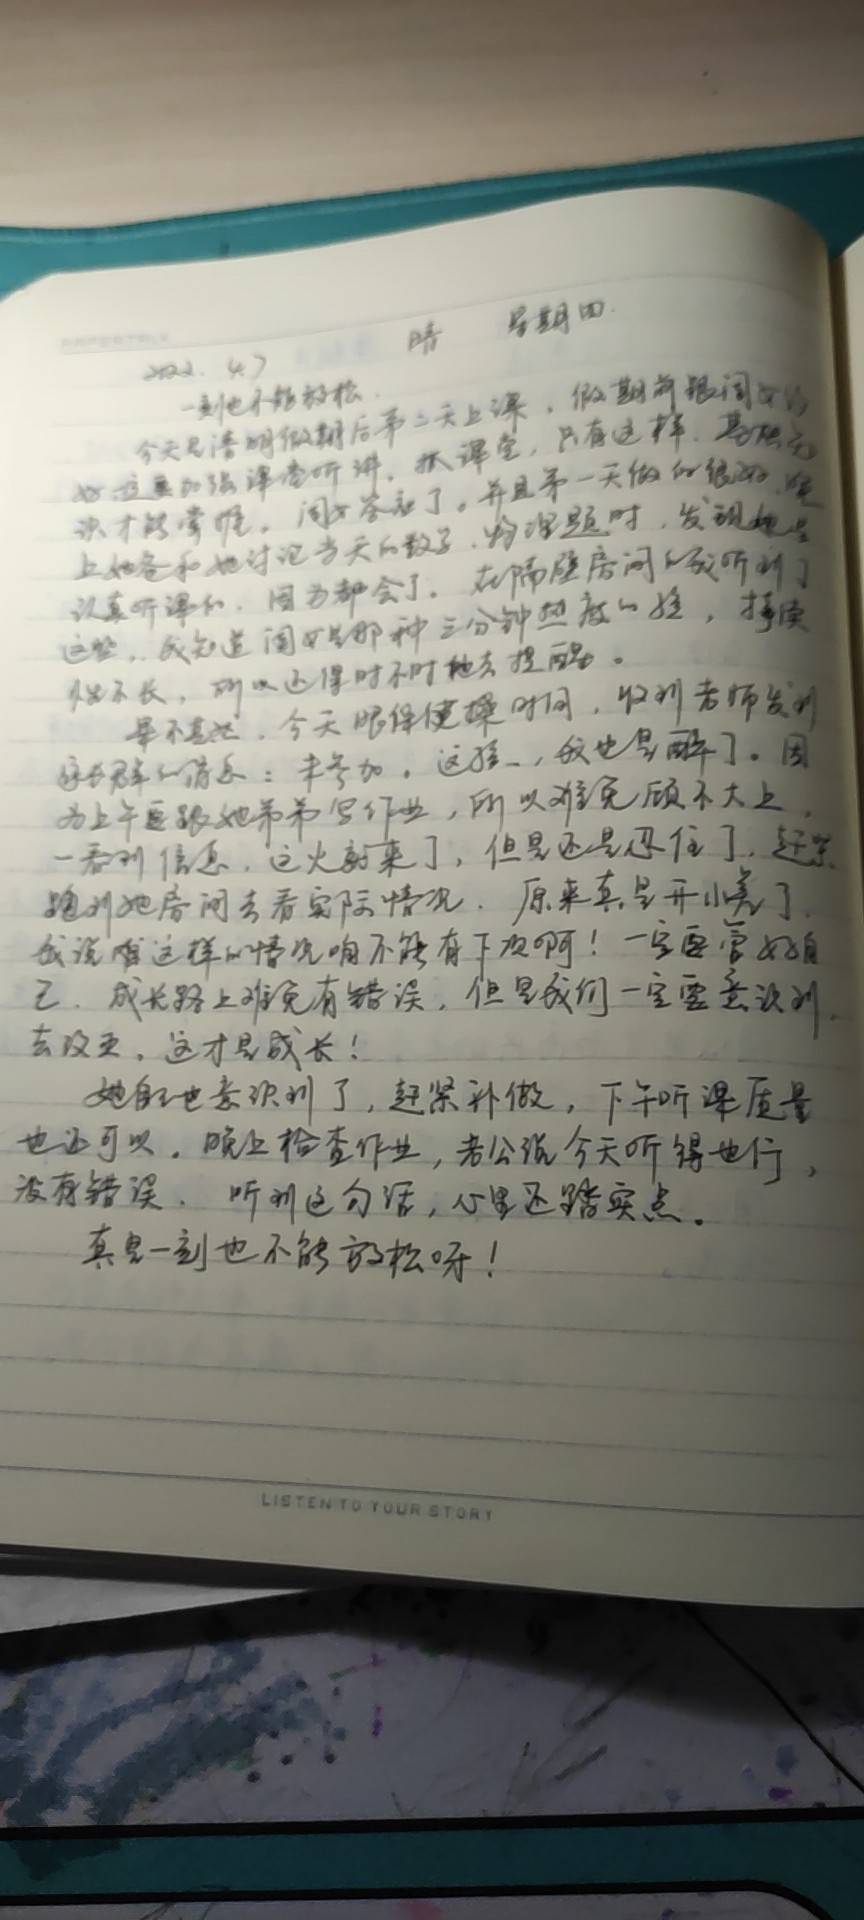 2022.4.7 晴 星期四.
一刻也不能放松.
今天是清明假期后第二天上课，假期前跟闺女
要加强课堂听讲，抓课堂，只有这样，基础知
识才能掌握。闺女答应了。并且第一天做的很好，晚
上她爸和她讨论当天的数学、物理题时，发现她是
认真听课的，因为都会了。在隔壁房间的我听到了
这些，我知道闺女是那种三分钟热度的娃，持续
性不长，所以还得时不时地去提醒。
果不其然，今天眼保健操时间，收到老师发到
家长群的消息：未参加。这娃，我也是醉了。因
为上午要跟她弟弟写作业，所以难免顾不大上，
一看到信息，这火就来了，但是还是忍住了，赶紧
跑到她房间去看实际情况．原来真是开小差了，
我说难这样的情况咱不能有下次啊！一定要管好自
己．成长路上难免有错误，但是我们一定要意识到，
去改正，这才是成长！
她自己也意识到了，赶紧补做，下午听课质量
也还可以。晚上检查作业，老公说今天听得也行，
没有错误．听到这句话，心里还踏实点。
真是一刻也不能放松呀！
LISTEN TO YOUR STORY